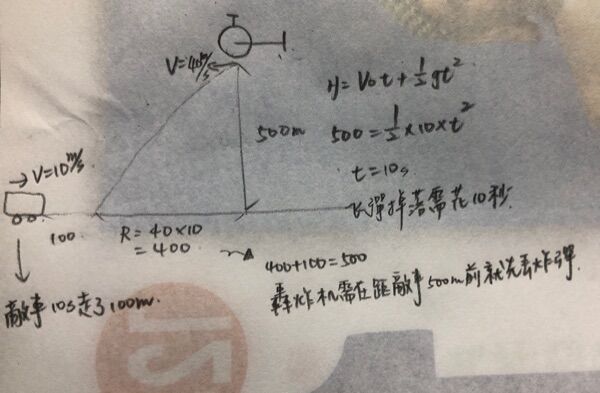 V=40m/s
H=V₀t+½gt²
500m
500=½×10×t²
t=10s
→V=10m/s
炸彈掉落需花10秒.
100
R=40×10
=400
400+100=500
敵車10s走了100m.
轟炸机需在距敵車500m前就先丟炸彈.